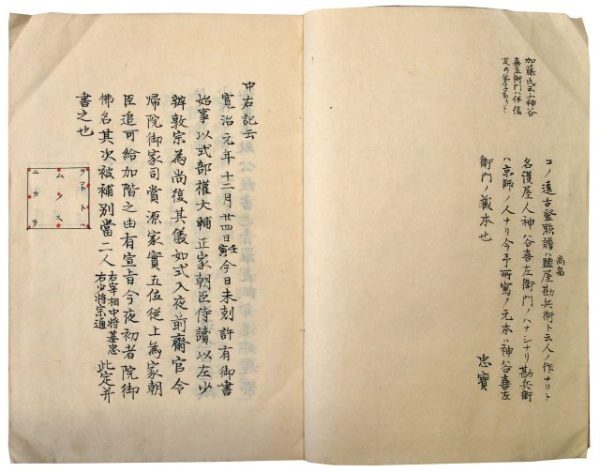 加藤氏云小神谷
喜左衛門ハ
コノ遠古登點譜ハ鹽屋勘兵衛ト云人ノ作ナリト
名護屋人神谷喜左衛門ノハナシナリ勘兵衛
ハ京師ノ人ナリ今予所寫ノ元本ハ神谷喜左
衛門ノ蔵本也
忠寶
中右記云
寛治元年十二月廿四日壬寅今日未刻許有御書
始事以式部權大輔正家朝臣侍讀以左少
辨敦宗為尚復其儀如式入夜前齋宮令
帰院御家司賞源家實五位從上為家朝
臣追可給加階之由有宣旨今夜初者院御
佛名其次被補別當二人右宰相中将基忠右少将宗通此定并
書之也